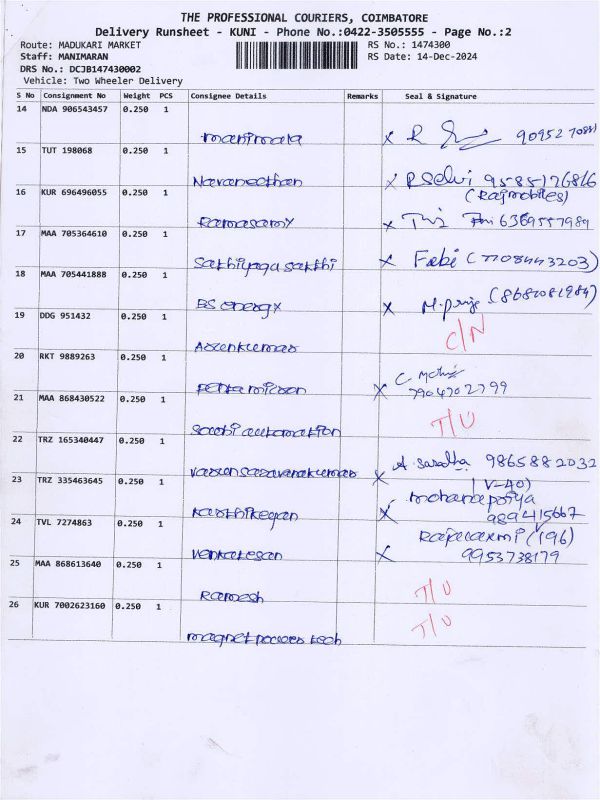 THE PROFESSIONAL COURIERS, COIMBATORE
Delivery Runsheet - KUNI - Phone No.:0422-3505555 - Page No.:2
Route: MADUKARI MARKET RS No.: 1474300
Staff: MANIMARAN RS Date: 14-Dec-2024
DRS No.: DCJB147430002
Vehicle: Two Wheeler Delivery
S No Consignment No Weight PCS Consignee Details Remarks Seal & Signature
14 NDA 906543457 0.250 1
manimala x R
15 TUT 198068 0.250 1
Navaneethan x R Selvi 9585176816
(Rajmobiles)
16 KUR 696496055 0.250 1
Ramasamy x 6369557989
17 MAA 705364610 0.250 1
Sakthiyoga sakthi x Fabi (7708443203)
18 MAA 705441888 0.250 1
BS energy x M. priya (8682081984)
19 DDG 951432 0.250 1
Arunkumar C/N
20 RKT 9889263 0.250 1
x C. 7904702799
21 MAA 868430522 0.250 1
automation T/U
22 TRZ 165340447 0.250 1
Varun saravanakumar x A. Saradha 9865882032
(V-40)
23 TRZ 335463645 0.250 1
Karthikeyan x mohanapriya
989415667
24 TVL 7274863 0.250 1
Venkatesan x Rajalaxmi (196)
9953738179
25 MAA 868613640 0.250 1
Ramesh T/U
26 KUR 7002623160 0.250 1
magnet powers tech T/U